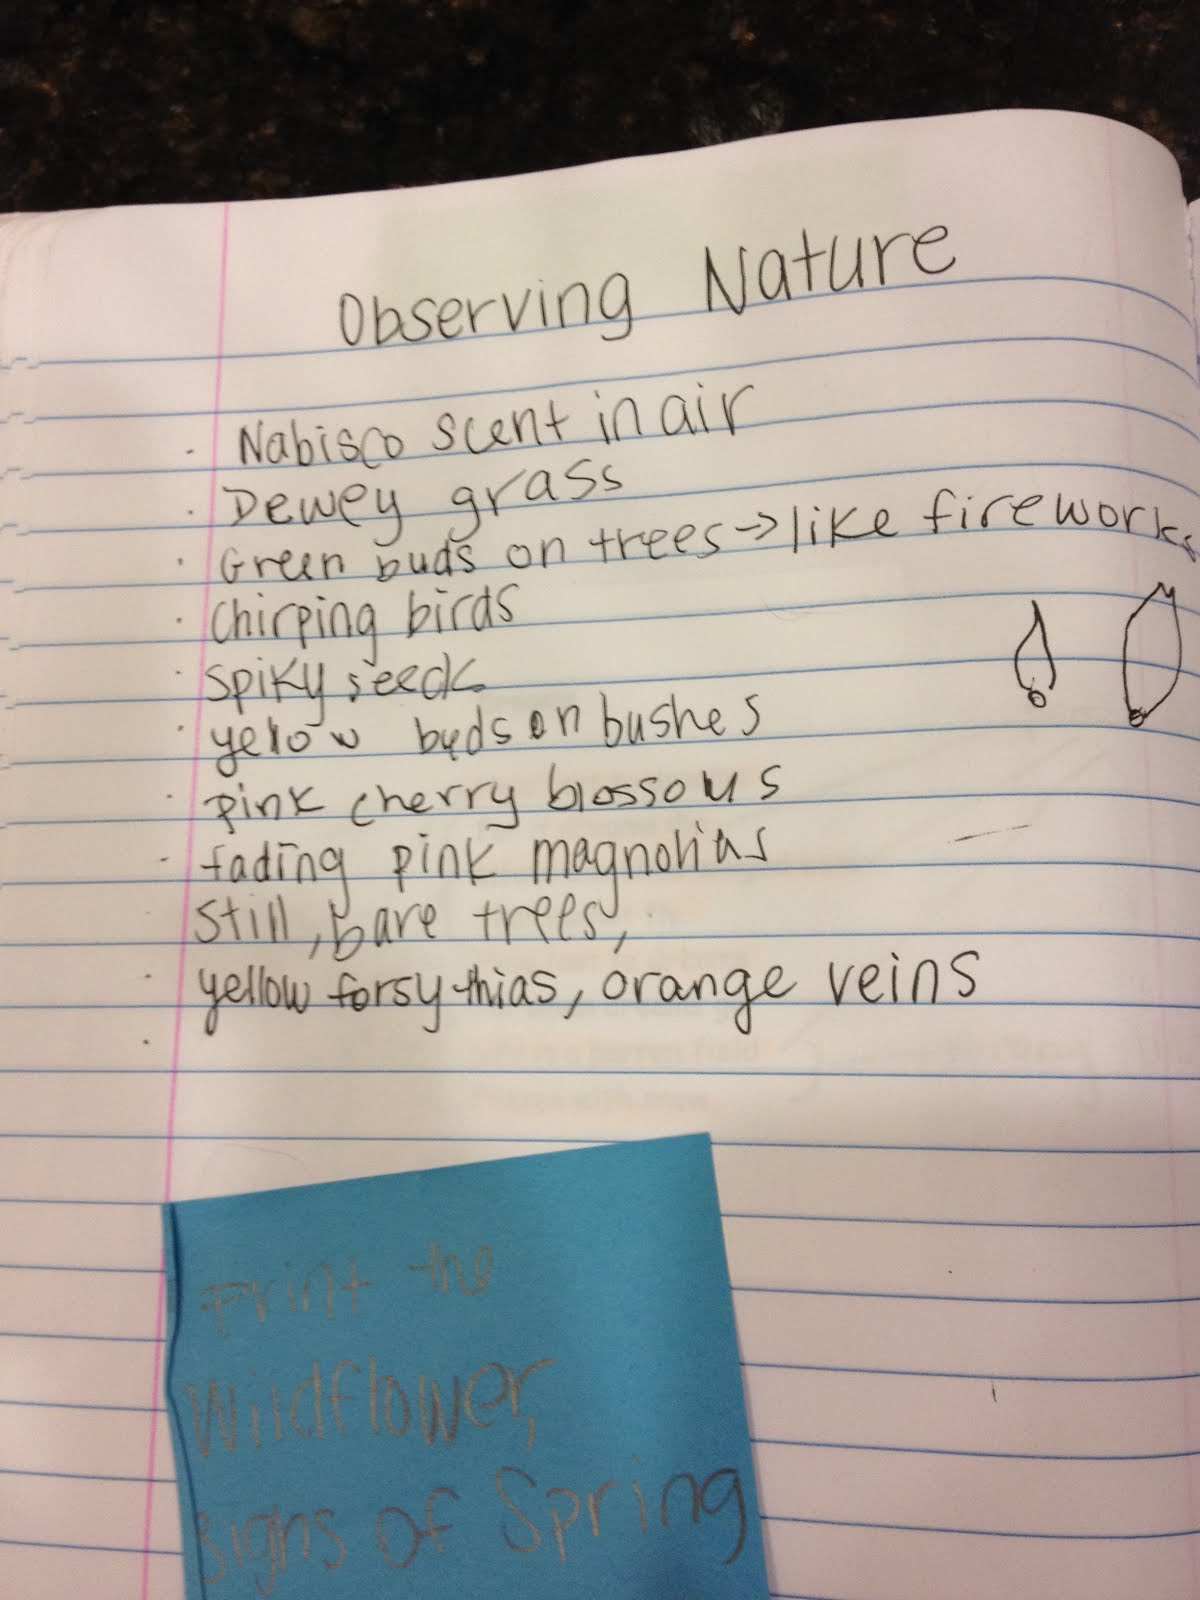 Observing Nature
· Nabisco scent in air
· Dewey grass
· Green buds on trees → like fireworks
· Chirping birds
· spiky seeds
· yelow buds on bushes
· pink cherry blossoms
· fading pink magnolias
still, bare trees,
· yellow forsythias, orange veins
·
Print the
Wildflower,
Signs of Spring